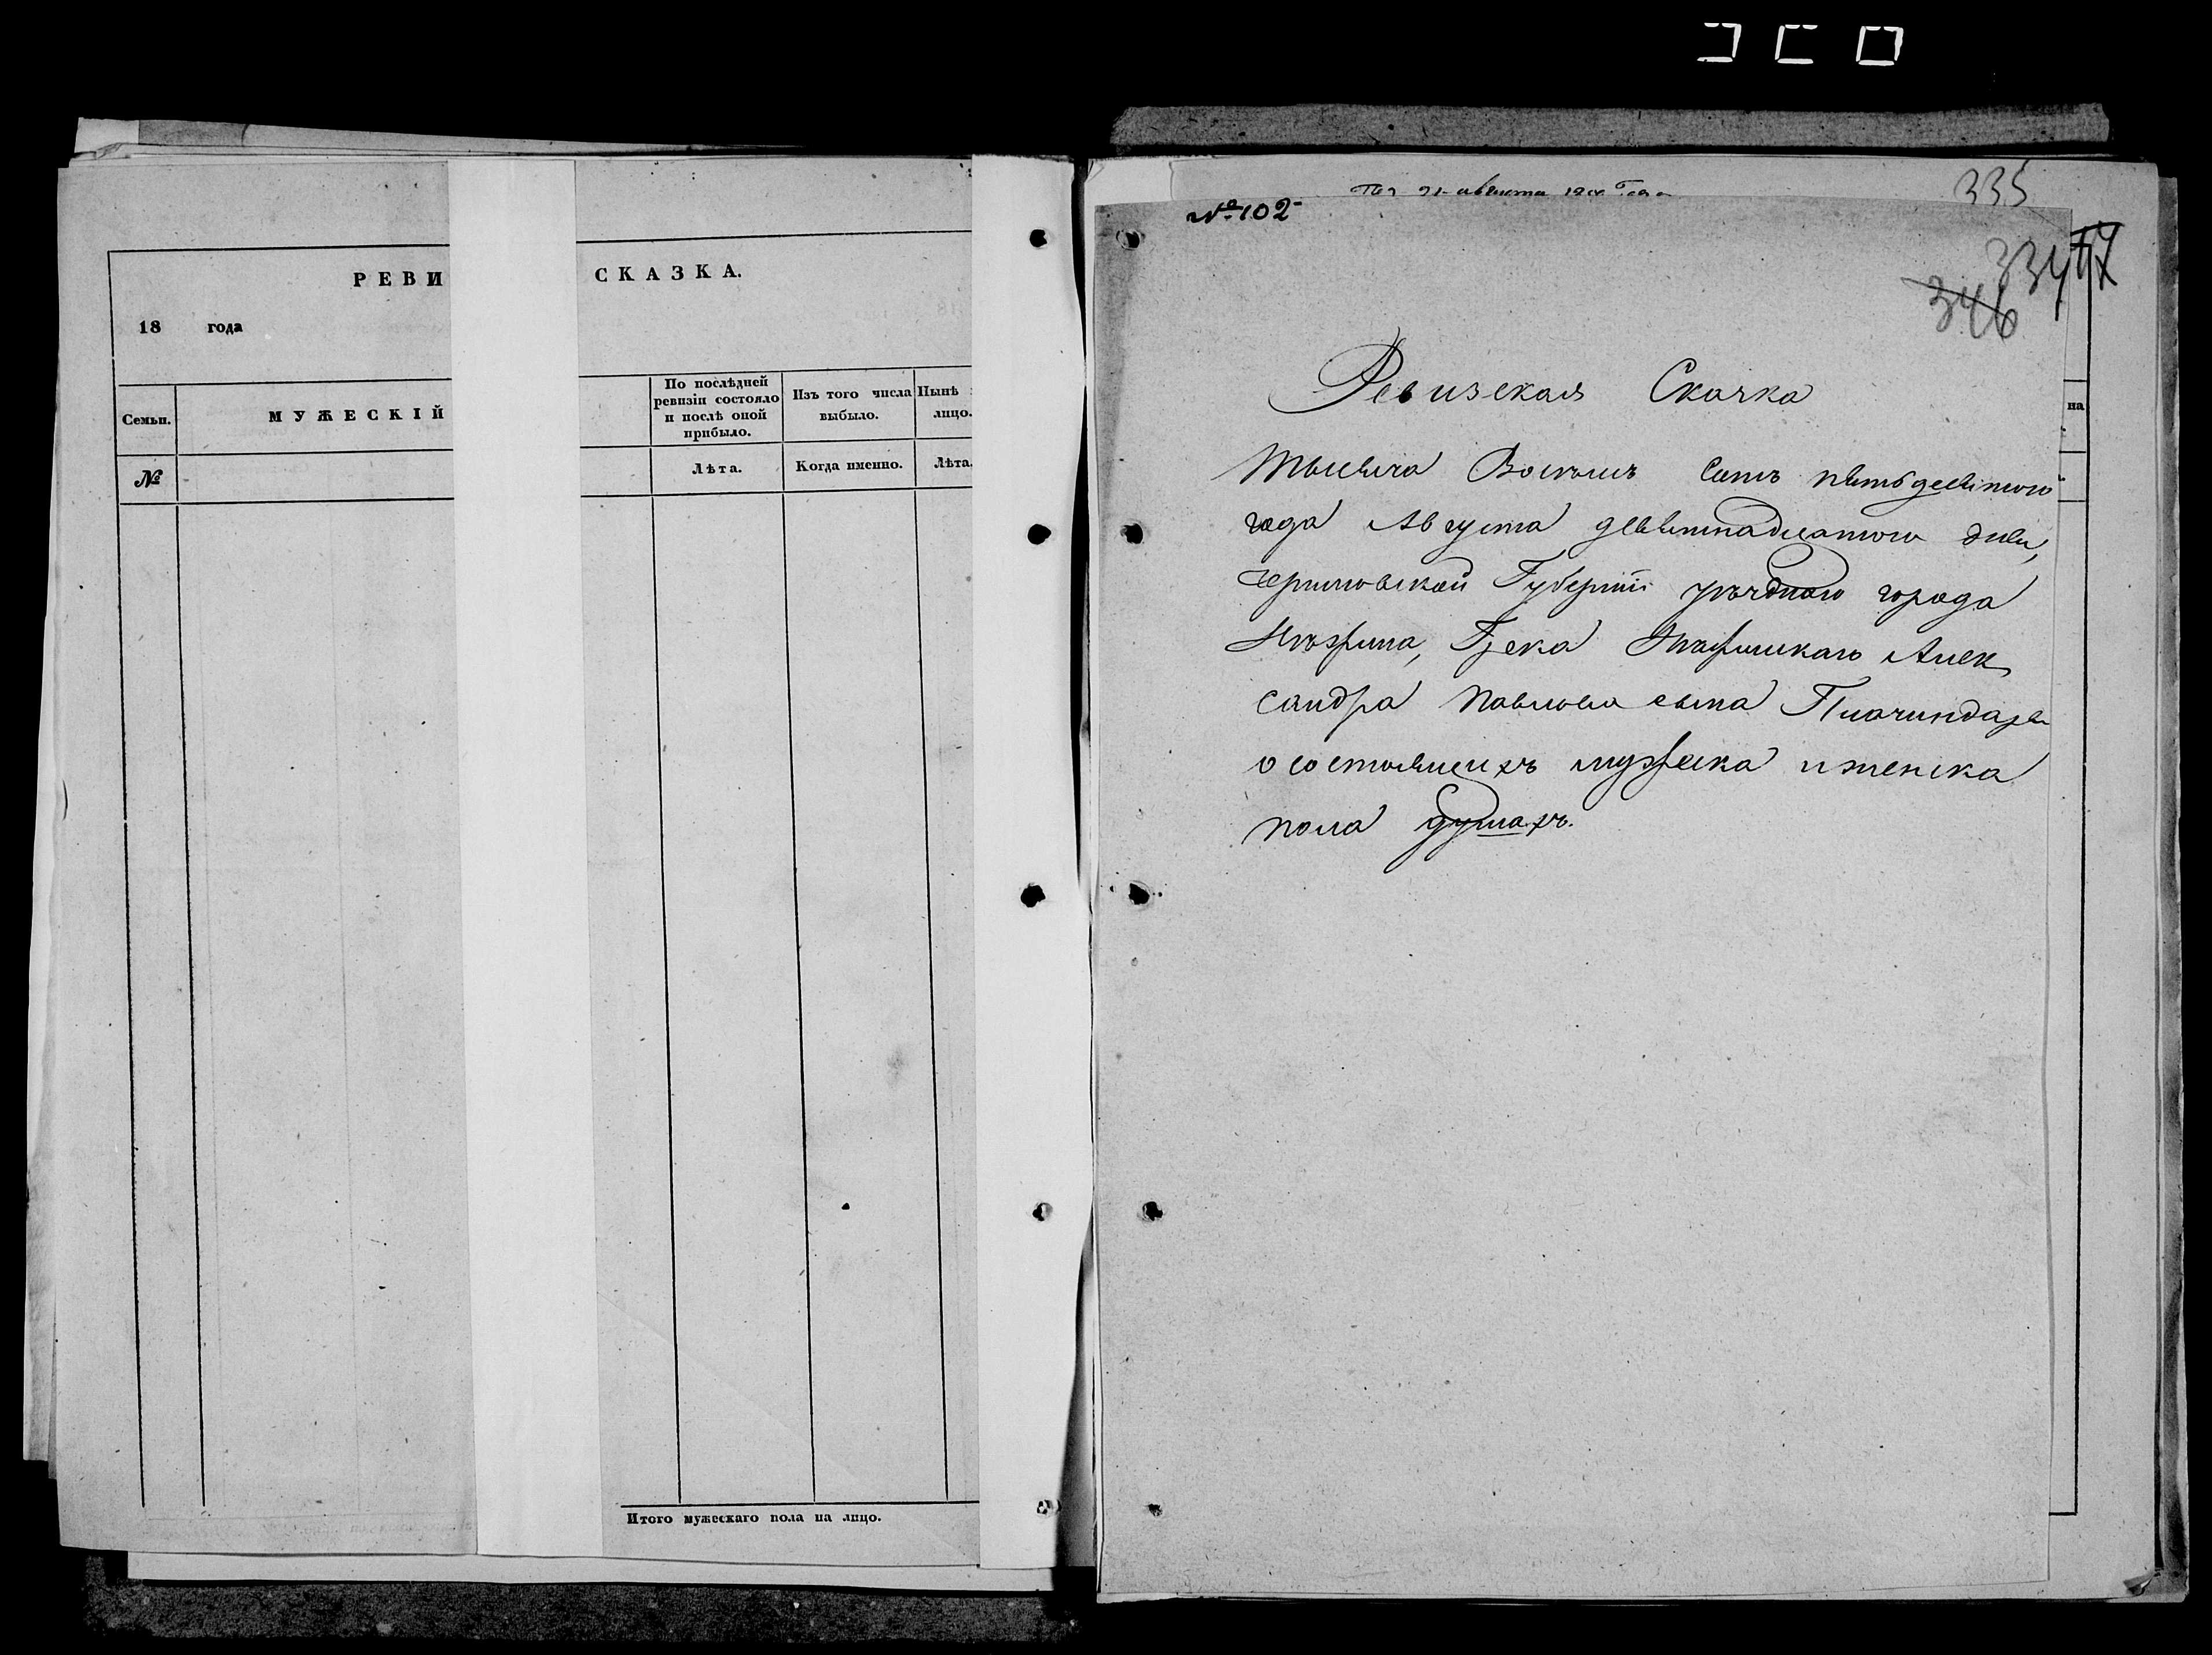 РЕВИ СКАЗКА.
18 года
Семьи.
МУЖЕСКІЙ
По послѣдней ревизіи состояло и послѣ оной прибыло.
Изъ того числа выбыло.
Нынѣ лицо.
№
Лѣта.
Когда именно.
Лѣта.
Итого мужескаго пола на лицо.
августа
335
№ 102
334
346
на
Ревизская Скаска
Тысяча Восемъ Сотъ пятьдесятого
года Августа девятнадцатого дня,
Черниговской Губерніи уѣздного города
Нѣжина, Грека Нѣжинскаго Алек
сандра Павлова сына
о состоящихъ мужеска и женска
пола душахъ.